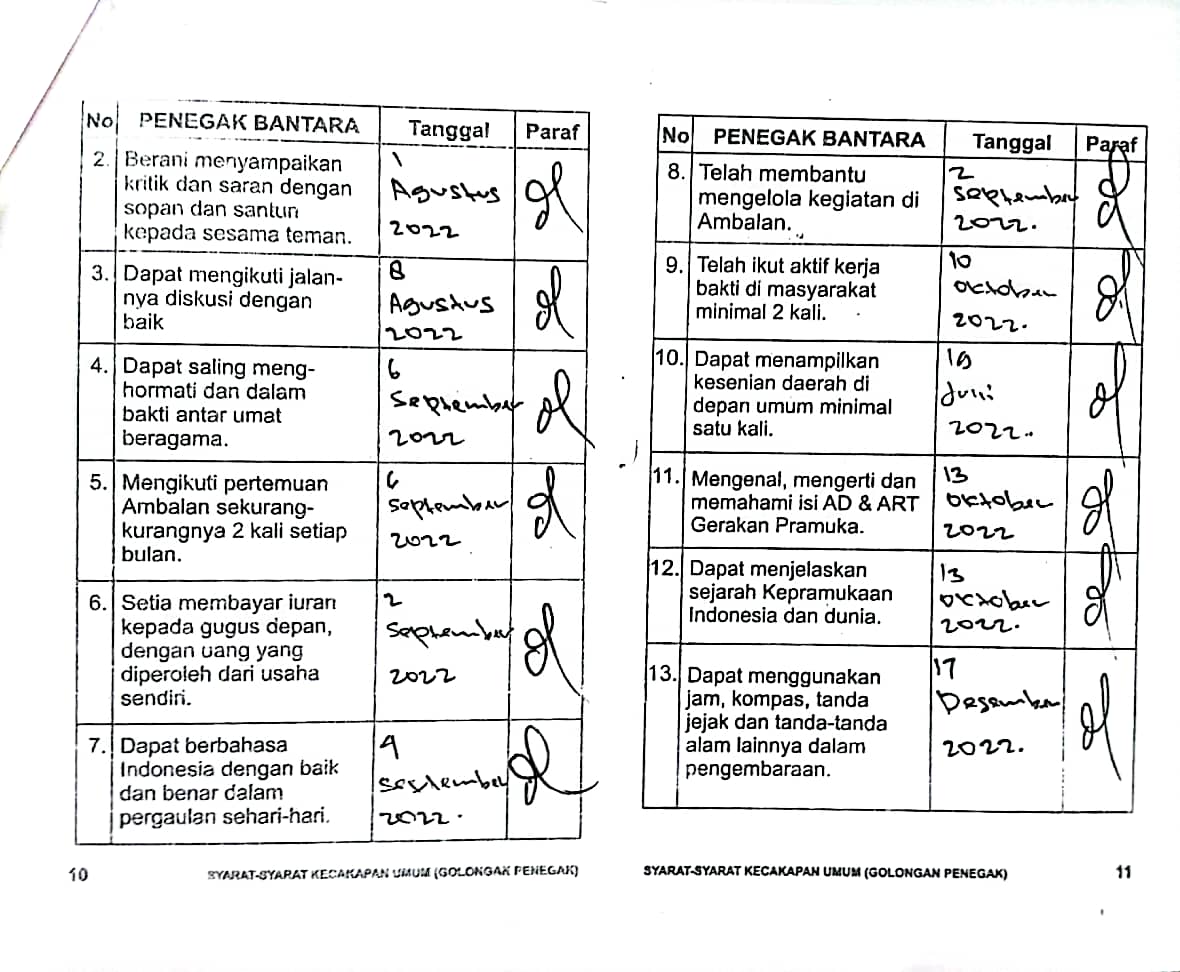 No PENEGAK BANTARA Tanggal Paraf
2. Berani menyampaikan
kritik dan saran dengan
sopan dan santun
kepada sesama teman.
1
Agustus
2022
3. Dapat mengikuti jalan-
nya diskusi dengan
baik
8
Agustus
2022
4. Dapat saling meng-
hormati dan dalam
bakti antar umat
beragama.
6
September
2022
5. Mengikuti pertemuan
Ambalan sekurang-
kurangnya 2 kali setiap
bulan.
6
September
2022
6. Setia membayar iuran
kepada gugus depan,
dengan uang yang
diperoleh dari usaha
sendiri.
2
September
2022
7. Dapat berbahasa
Indonesia dengan baik
dan benar dalam
pergaulan sehari-hari.
September
2022.
10 SYARAT-SYARAT KECAKAPAN UMUM (GOLONGAN PENEGAK)
No PENEGAK BANTARA Tanggal Paraf
8. Telah membantu
mengelola kegiatan di
Ambalan.
2
September
2022.
9. Telah ikut aktif kerja
bakti di masyarakat
minimal 2 kali.
10
Oktober
2022.
10. Dapat menampilkan
kesenian daerah di
depan umum minimal
satu kali.
Juni
2022.
11. Mengenal, mengerti dan
memahami isi AD & ART
Gerakan Pramuka.
13
Oktober
2022
12. Dapat menjelaskan
sejarah Kepramukaan
Indonesia dan dunia.
13
Oktober
2022.
13. Dapat menggunakan
jam, kompas, tanda
jejak dan tanda-tanda
alam lainnya dalam
pengembaraan.
17
Desember
2022.
SYARAT-SYARAT KECAKAPAN UMUM (GOLONGAN PENEGAK) 11